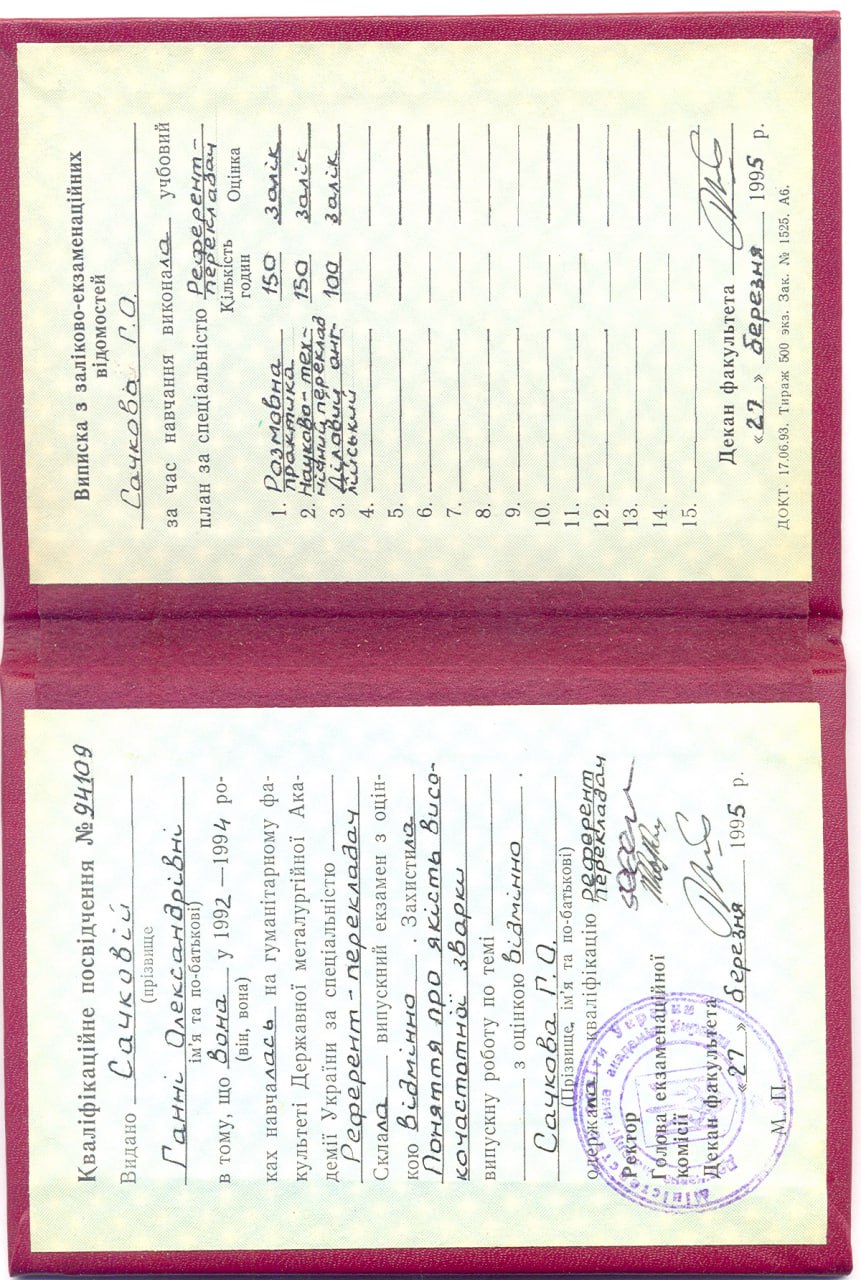 Кваліфікаційне посвідчення № 94109
Видано Сачковій
(прізвище
Ганні Олександрівні
ім'я та по-батькові)
в тому, що вона у 1992 —1994 ро-
(він, вона)
ках навчалась на гуманітарному фа-
культеті Державної металургійної Ака-
демії України за спеціальністю
Референт-перекладач
Склала випускний екзамен з оцін-
кою відмінно. Захистила
Поняття про якість висо-
кочастотної зварки
випускну роботу по темі
з оцінкою відмінно.
Сачкова Г.О.
(Прізвище, ім'я та по-батькові)
одержала кваліфікацію референт
перекладач
Ректор
Голова екзаменаційної
комісії
Декан факультета
«27» березня 1995 р.
М. П.
Виписка з заліково-екзаменаційних
відомостей
Сачкова Г.О.
за час навчання виконала учбовий
план за спеціальністю Референт-
перекладач
Кількість Оцінка
годин
1. Розмовна 150 залік
практика
2. Науково-тех- 150 залік
нічний переклад
3. Діловий анг- 100 залік
лійський
4.
5.
6.
7.
8.
9.
10.
11.
12.
13.
14.
15.
Декан факультета
«27» березня 1995 р.
ДОКТ. 17.06.93. Тираж 500 экз. Зак. № 1525. А6.